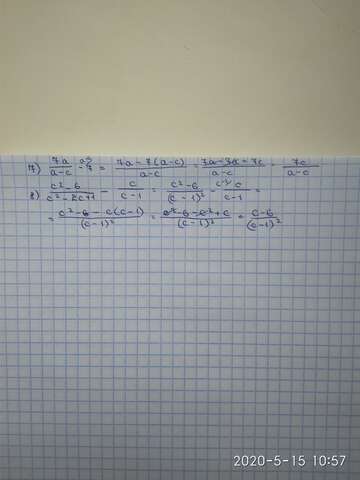 7) 7a/(a-c) - 7 = (7a-7(a-c))/(a-c) = (7a-7a-7c)/(a-c) = 7c/(a-c)
8) (c²-6)/(c²-2c+1) - c/(c-1) = (c²-6)/(c-1)² - c/(c-1) =
= (c²-6-c(c-1))/(c-1)² = (c²-6-c²+c)/(c-1)² = (c-6)/(c-1)²
2020-5-15 10:57